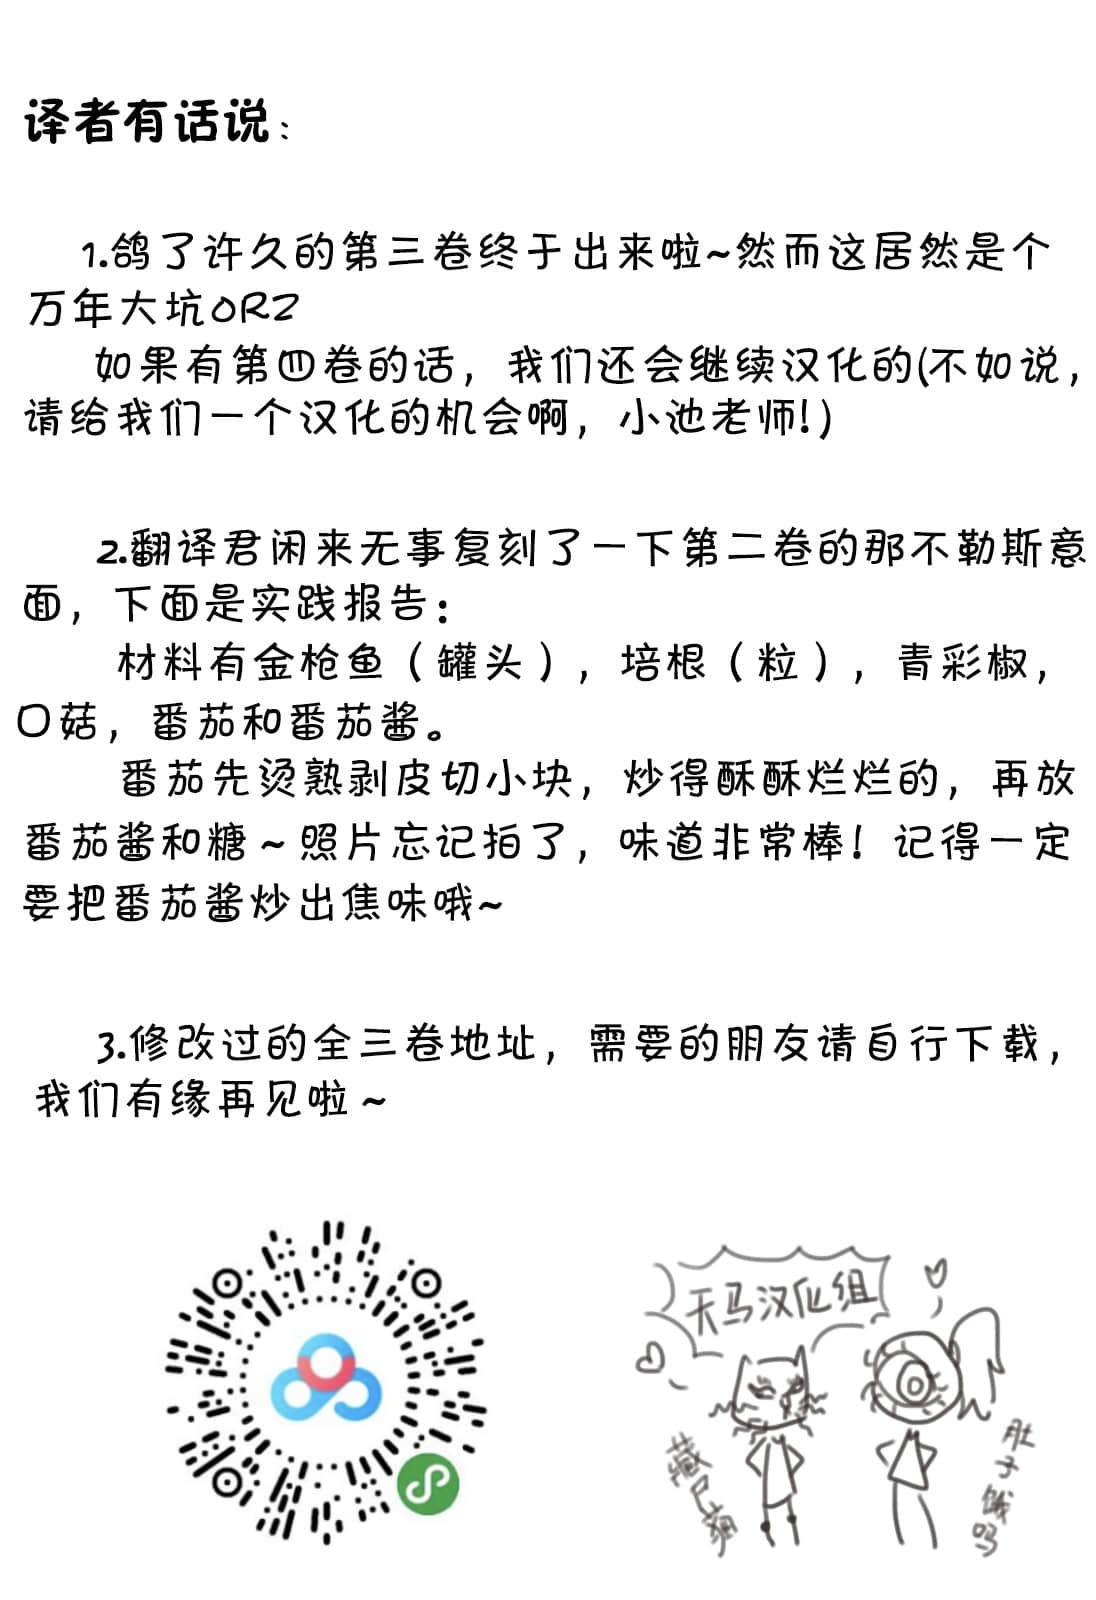 译者有话说：
1.鸽了许久的第三卷终于出来啦~然而这居然是个
万年大坑ORZ
如果有第四卷的话，我们还会继续汉化的(不如说，
请给我们一个汉化的机会啊，小池老师!)
2.翻译君闲来无事复刻了一下第二卷的那不勒斯意
面，下面是实践报告：
材料有金枪鱼（罐头），培根（粒），青彩椒，
口菇，番茄和番茄酱。
番茄先烫熟剥皮切小块，炒得酥酥烂烂的，再放
番茄酱和糖~照片忘记拍了，味道非常棒！记得一定
要把番茄酱炒出焦味哦~
3.修改过的全三卷地址，需要的朋友请自行下载，
我们有缘再见啦~
天马汉化组
藏尸葫
肚子饿吗